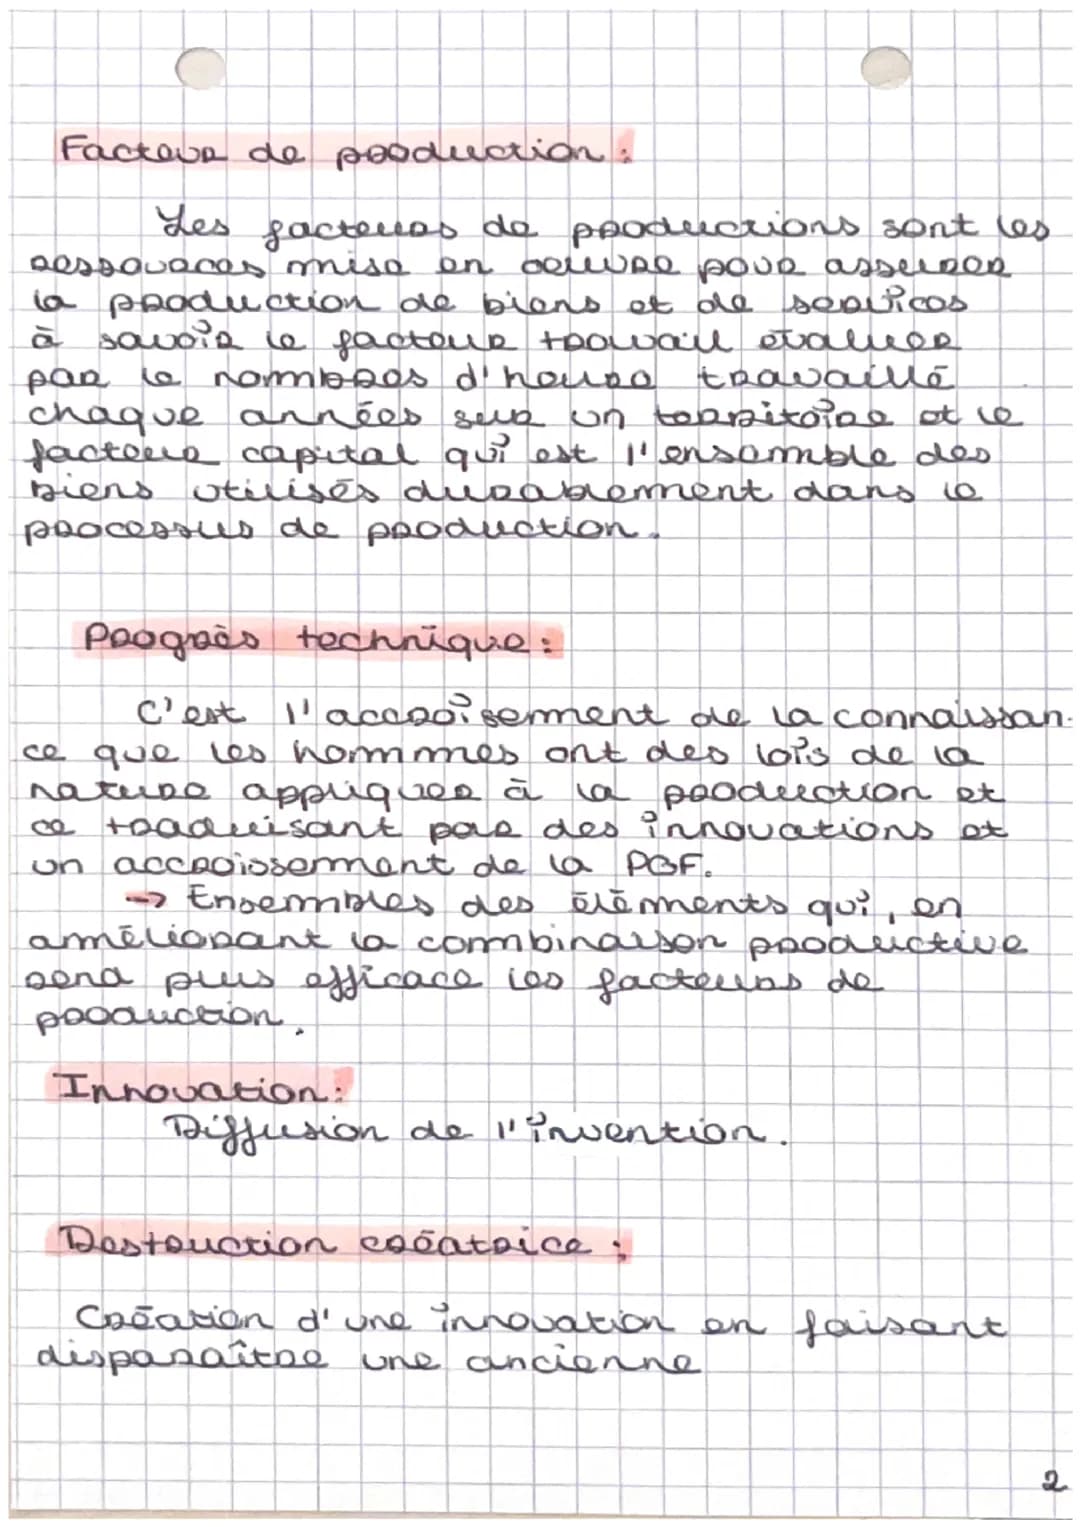 Facteur de production :
Les facteurs de productions sont les
ressources mise en oeuvre pour assurer
la production de biens et de services
à savoir le facteur travail évaluer
par le nombres d'heure travaillé
chaque années sur un territoire et le
facteur capital qui est l'ensemble des
biens utilisés durablement dans le
processus de production.
Progrès technique :
C'est l'accroisement de la connaissan-
ce que les hommmes ont des lois de la
nature appliquer à la production et
ce traduisant par des innovations et
un accroissement de la PGF.
→ Ensembles des éléments qui, en
améliorant la combinaison productive
rend plus efficace les facteurs de
production.
Innovation :
Diffusion de l'invention.
Destruction créatrice :
Création d'une innovation en faisant
disparaître une ancienne
2